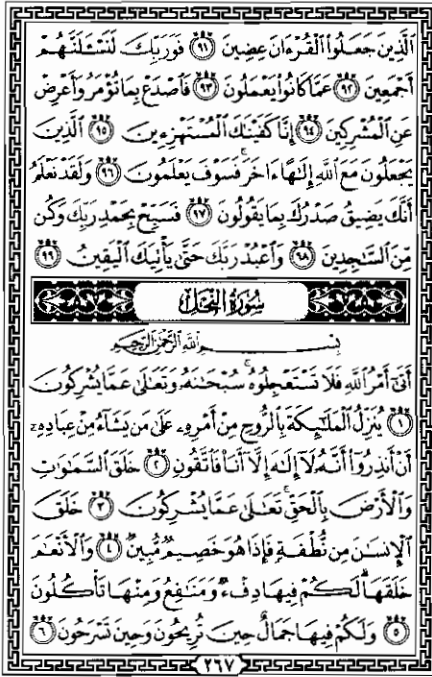 ٱلَّذِينَ جَعَلُوا۟ ٱلْقُرْءَانَ عِضِينَ ٩١ فَوَرَبِّكَ لَنَسْـَٔلَنَّهُمْ
أَجْمَعِينَ ٩٢ عَمَّا كَانُوا۟ يَعْمَلُونَ ٩٣ فَٱصْدَعْ بِمَا تُؤْمَرُ وَأَعْرِضْ
عَنِ ٱلْمُشْرِكِينَ ٩٤ إِنَّا كَفَيْنَـٰكَ ٱلْمُسْتَهْزِءِينَ ٩٥ ٱلَّذِينَ
يَجْعَلُونَ مَعَ ٱللَّهِ إِلَـٰهًا ءَاخَرَ ۚ فَسَوْفَ يَعْلَمُونَ ٩٦ وَلَقَدْ نَعْلَمُ
أَنَّكَ يَضِيقُ صَدْرُكَ بِمَا يَقُولُونَ ٩٧ فَسَبِّحْ بِحَمْدِ رَبِّكَ وَكُن
مِّنَ ٱلسَّـٰجِدِينَ ٩٨ وَٱعْبُدْ رَبَّكَ حَتَّىٰ يَأْتِيَكَ ٱلْيَقِينُ ٩٩
سُورَةُ النَّحْلِ
بِسْمِ ٱللَّهِ ٱلرَّحْمَـٰنِ ٱلرَّحِيمِ
أَتَىٰٓ أَمْرُ ٱللَّهِ فَلَا تَسْتَعْجِلُوهُ ۚ سُبْحَـٰنَهُۥ وَتَعَـٰلَىٰ عَمَّا يُشْرِكُونَ
١ يُنَزِّلُ ٱلْمَلَـٰٓئِكَةَ بِٱلرُّوحِ مِنْ أَمْرِهِۦ عَلَىٰ مَن يَشَآءُ مِنْ عِبَادِهِۦٓ
أَنْ أَنذِرُوٓا۟ أَنَّهُۥ لَآ إِلَـٰهَ إِلَّآ أَنَا۠ فَٱتَّقُونِ ٢ خَلَقَ ٱلسَّمَـٰوَٰتِ
وَٱلْأَرْضَ بِٱلْحَقِّ ۚ تَعَـٰلَىٰ عَمَّا يُشْرِكُونَ ٣ خَلَقَ
ٱلْإِنسَـٰنَ مِن نُّطْفَةٍ فَإِذَا هُوَ خَصِيمٌ مُّبِينٌ ٤ وَٱلْأَنْعَـٰمَ
خَلَقَهَا ۗ لَكُمْ فِيهَا دِفْءٌ وَمَنَـٰفِعُ وَمِنْهَا تَأْكُلُونَ
٥ وَلَكُمْ فِيهَا جَمَالٌ حِينَ تُرِيحُونَ وَحِينَ تَسْرَحُونَ ٦
٢٦٧